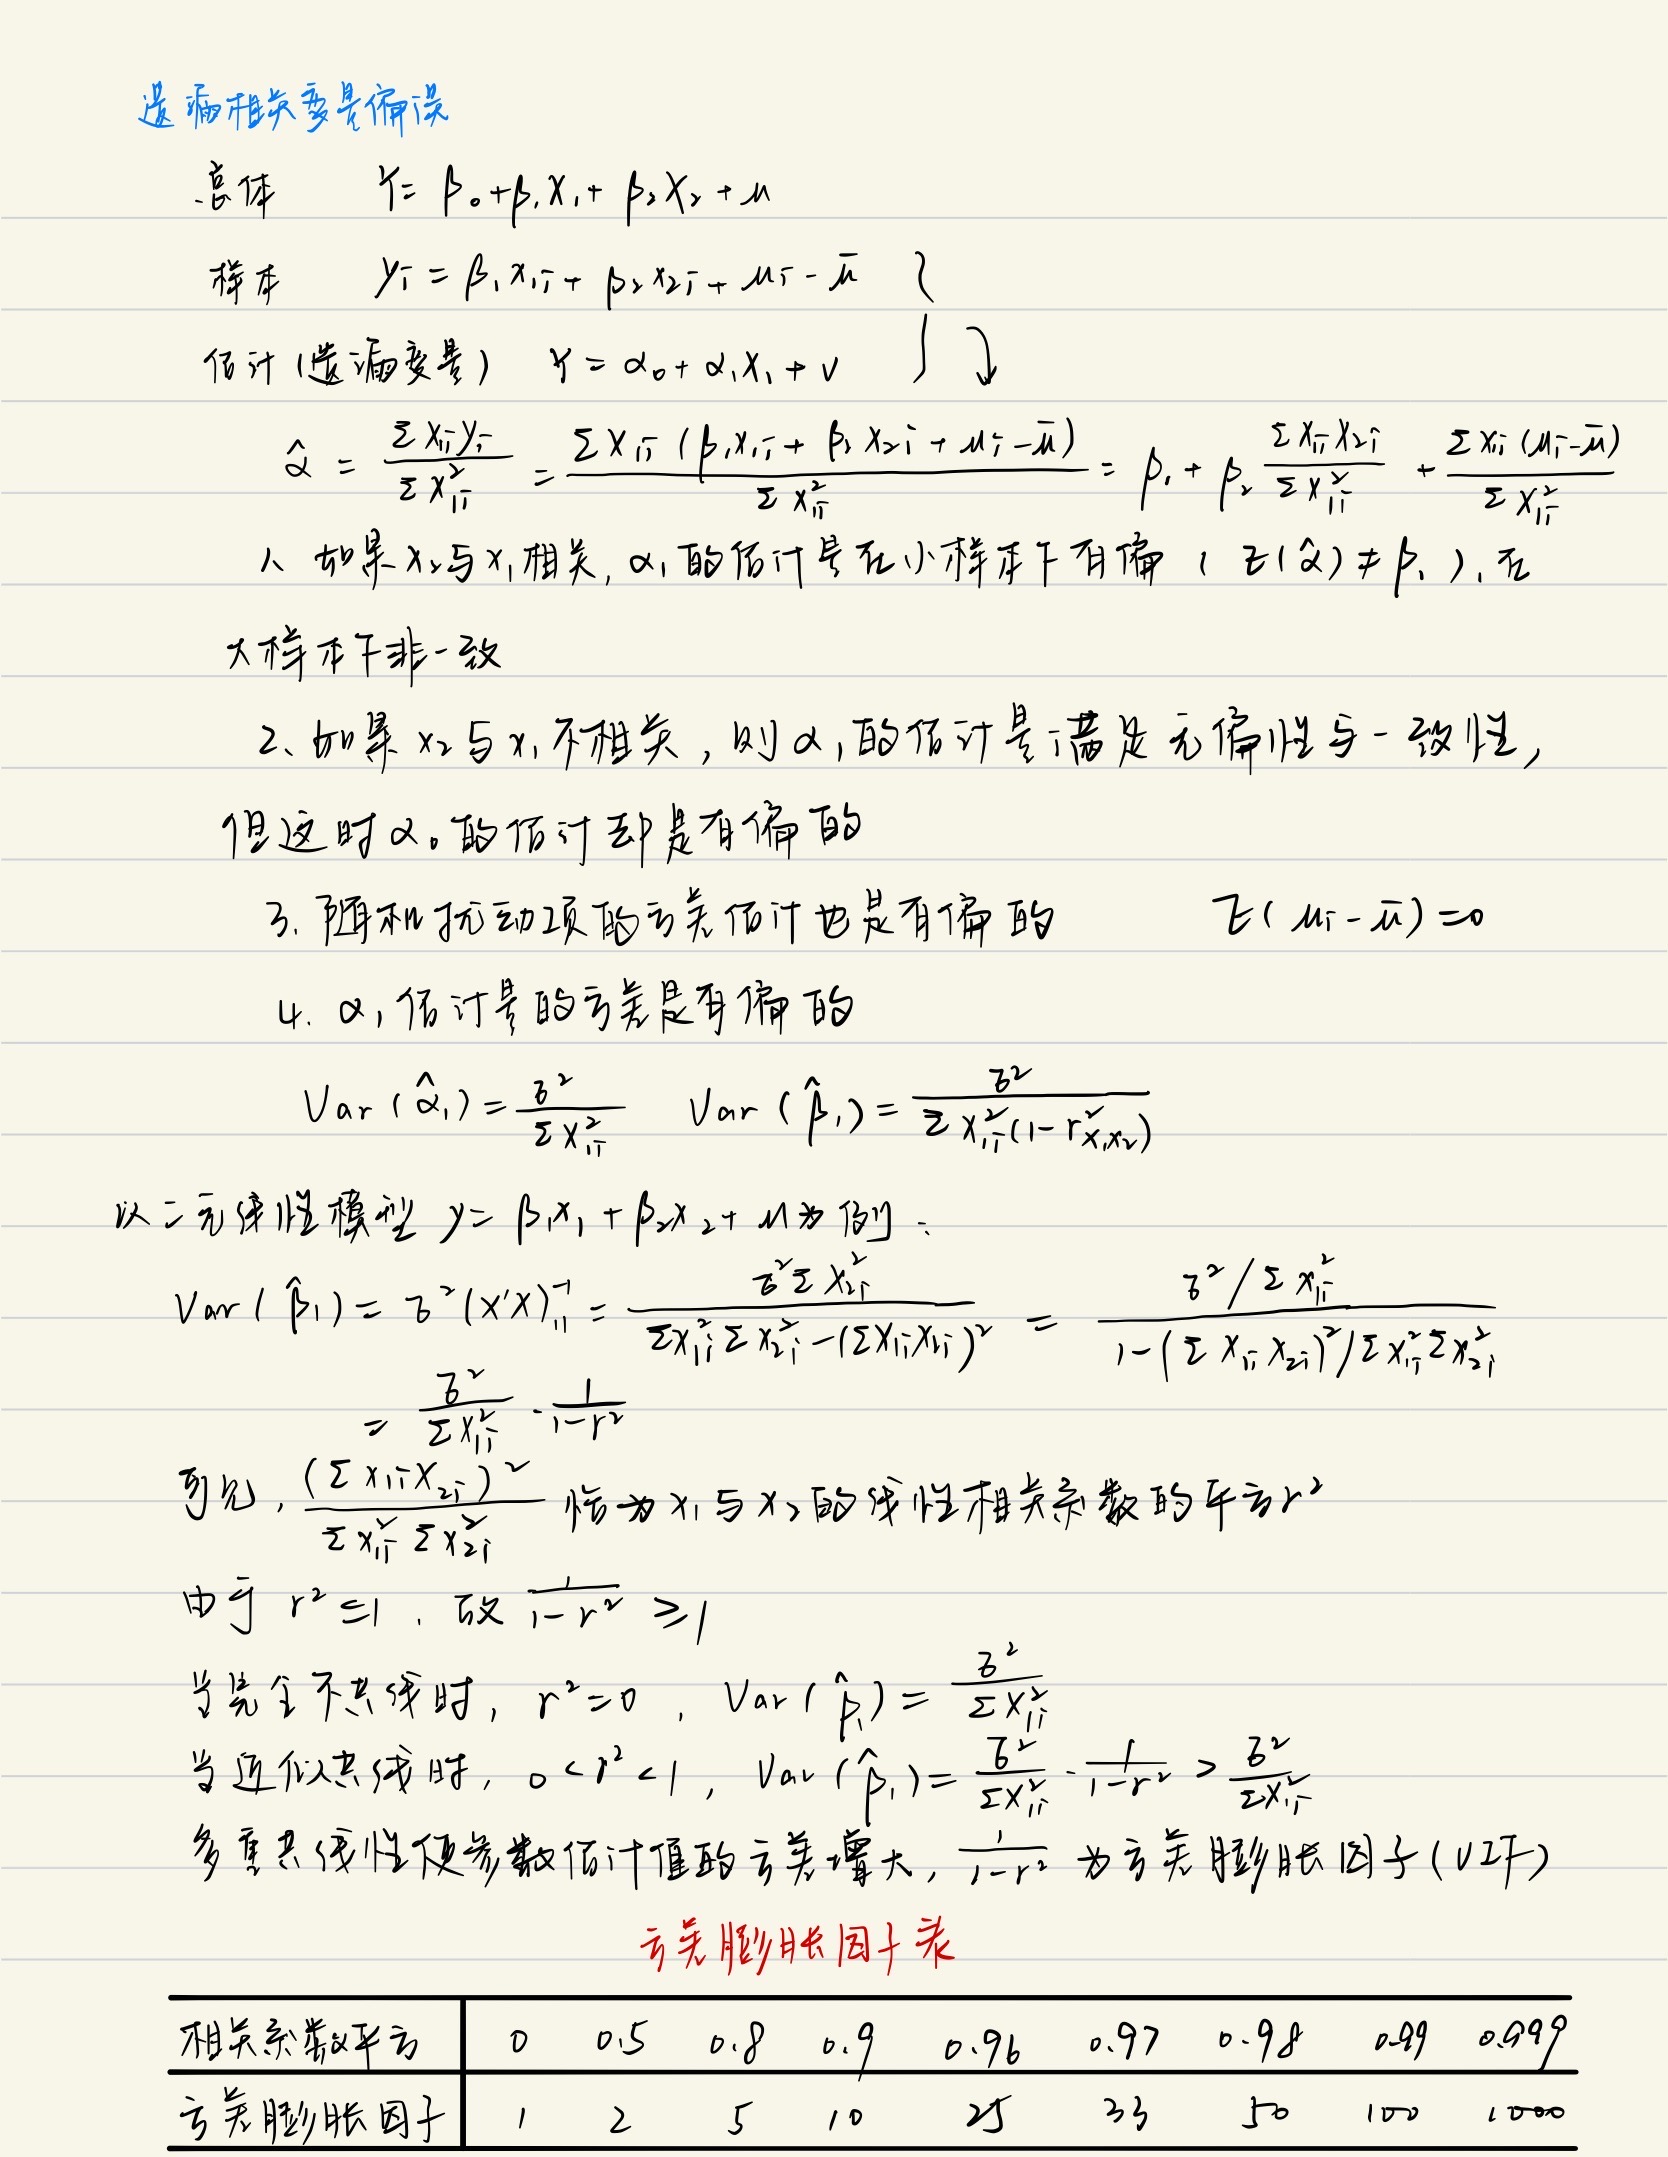 遗漏相关变量偏误
总体 Y = β₀ + β₁X₁ + β₂X₂ + μ
样本 yᵢ = β₁x₁ᵢ + β₂x₂ᵢ + μᵢ - μ̄
估计(遗漏变量) Y = α₀ + α₁X₁ + v
α̂ = Σx₁ᵢyᵢ / Σx₁ᵢ² = Σx₁ᵢ(β₁x₁ᵢ + β₂x₂ᵢ + μᵢ - μ̄) / Σx₁ᵢ² = β₁ + β₂ Σx₁ᵢx₂ᵢ / Σx₁ᵢ² + Σx₁ᵢ(μᵢ - μ̄) / Σx₁ᵢ²
1、如果x₂与x₁相关, α₁的估计量在小样本下有偏 ( E(α̂) ≠ β₁ ), 在
大样本下非一致
2、如果x₂与x₁不相关, 则α₁的估计量满足无偏性与一致性,
但这时α₀的估计却是有偏的
3. 随机扰动项的方差估计也是有偏的 E(μᵢ - μ̄) = 0
4. α₁估计量的方差是有偏的
Var(α̂₁) = σ² / Σx₁ᵢ² Var(β̂₁) = σ² / Σx₁ᵢ²(1 - r²x₁x₂)
以二元线性模型 y = β₁x₁ + β₂x₂ + μ为例:
Var(β̂₁) = σ²(X'X)⁻¹₁₁ = σ²Σx₂ᵢ² / (Σx₁ᵢ²Σx₂ᵢ² - (Σx₁ᵢx₂ᵢ)²) = (σ²/Σx₁ᵢ²) / (1 - (Σx₁ᵢx₂ᵢ)²/Σx₁ᵢ²Σx₂ᵢ²)
= σ² / Σx₁ᵢ² · 1 / (1 - r²)
可见, (Σx₁ᵢx₂ᵢ)² / Σx₁ᵢ²Σx₂ᵢ² 恰为x₁与x₂的线性相关系数的平方r²
由于 r² ≤ 1, 故 1 / (1 - r²) ≥ 1
当完全不共线时, r² = 0, Var(β̂₁) = σ² / Σx₁ᵢ²
当近似共线时, 0 < r² < 1, Var(β̂₁) = σ² / Σx₁ᵢ² · 1 / (1 - r²) > σ² / Σx₁ᵢ²
多重共线性使参数估计值的方差增大, 1 / (1 - r²) 为方差膨胀因子(VIF)
方差膨胀因子表
相关系数平方 0 0.5 0.8 0.9 0.96 0.97 0.98 0.99 0.999
方差膨胀因子 1 2 5 10 25 33 50 100 1000